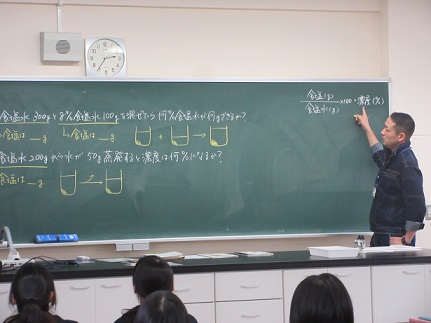 食塩水300gと8%食塩水100gを混ぜたら何%食塩水が何gできるか?
食塩は__g 食塩は__g
食塩水200gから水が50g蒸発すると濃度は何%になるか?
食塩は__g
食塩(g)/食塩水(g)×100=濃度(%)